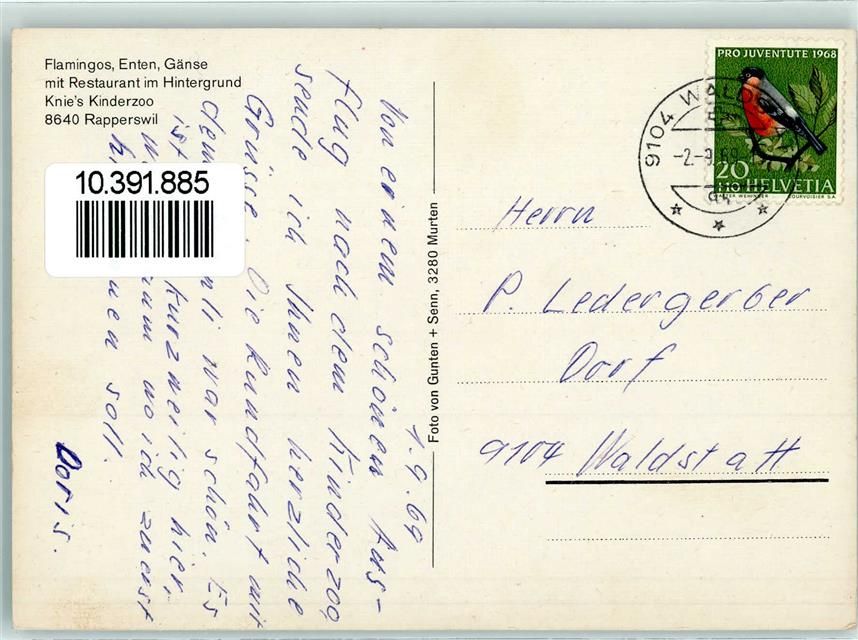 Flamingos, Enten, Gänse
mit Restaurant im Hintergrund
Knie's Kinderzoo
8640 Rapperswil
10.391.885
1.9.69
Von einem schönen Aus-
flug nach dem Kinderzoo
sende ich Ihnen herzliche
Grüsse. Die Rundfahrt mit
dem nli war schön. Es
ist kurzweilig hier,
wo ich zuerst
soll.
Doris.
Foto von Gunten + Senn, 3280 Murten
PRO JUVENTUTE 1968
20
+10 HELVETIA
COURVOISIER S.A.
9104 WALDS
-2.-9.69
Herrn
P. Ledergerber
Dorf
9104 Waldstatt